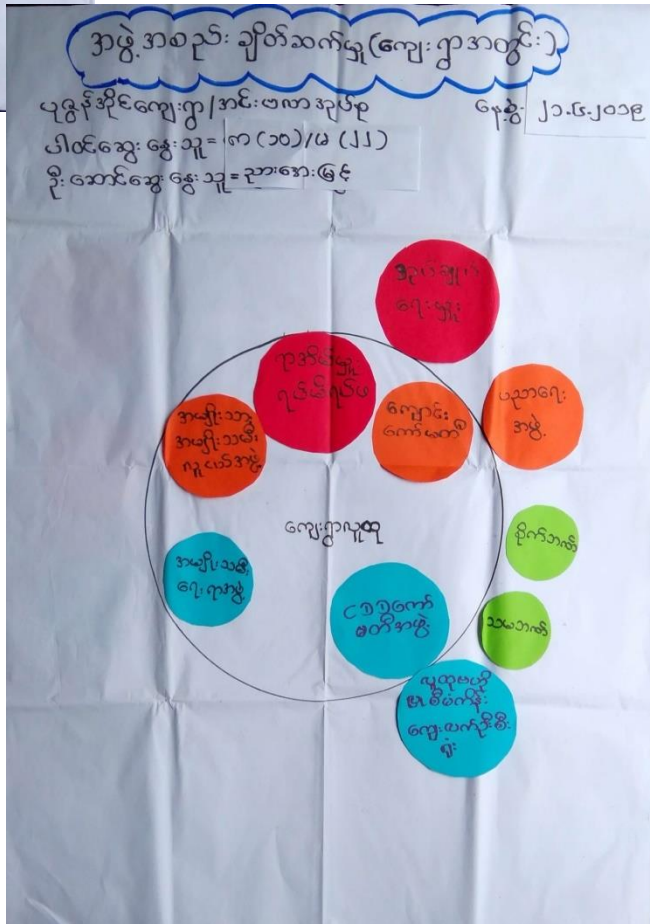 အဖွဲ့အစည်း ချိတ်ဆက်မှု (ကျေးရွာအတွင်း)
ပုဇွန်အိုင်ကျေးရွာ / အင်းဗလာအုပ်စု
နေ့စွဲ ၂၁.၆.၂၀၁၉
ပါဝင်ဆွေးနွေးသူ = ကျာ (၁၀) / မ (၂၂)
ဦးဆောင်ဆွေးနွေးသူ = ညားအေးမြင့်
အုပ်ချုပ်
ရေးမှူး
ရာအိမ်မှူး
ရပ်မိရပ်ဖ
အမျိုးသား
အမျိုးသမီး
လူငယ်အဖွဲ့
ကျောင်း
ကော်မတီ
ပညာရေး
အဖွဲ့
ကျေးရွာလူထု
စိုက်ဘဏ်
အမျိုးသမီး
ရေးရာအဖွဲ့
CDDကော်
မတီအဖွဲ့
သမဘဏ်
လူထုဗဟို
စီမံကိန်း
ကျေးလက်ဦးစီး
ရုံး